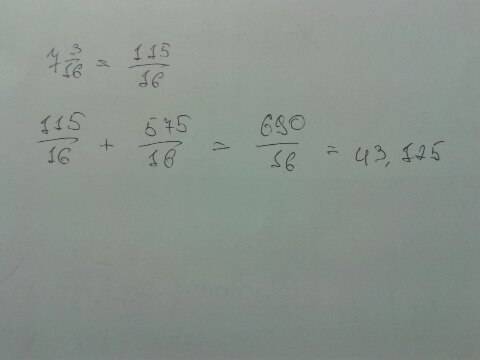 7 3/16 = 115/16
115/16 + 575/16 = 690/16 = 43,125